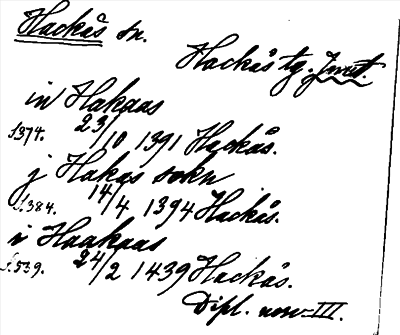 Hackås sn.
Hackås tg. Jmtl.
in Hakaas
S374. 23/10 1391 Hackås.
j Hakas sokn
S.384. 14/4 1394 Hackås.
i Haakaas
S.539. 24/2 1439 Hackås.
Dipl. norv. III.